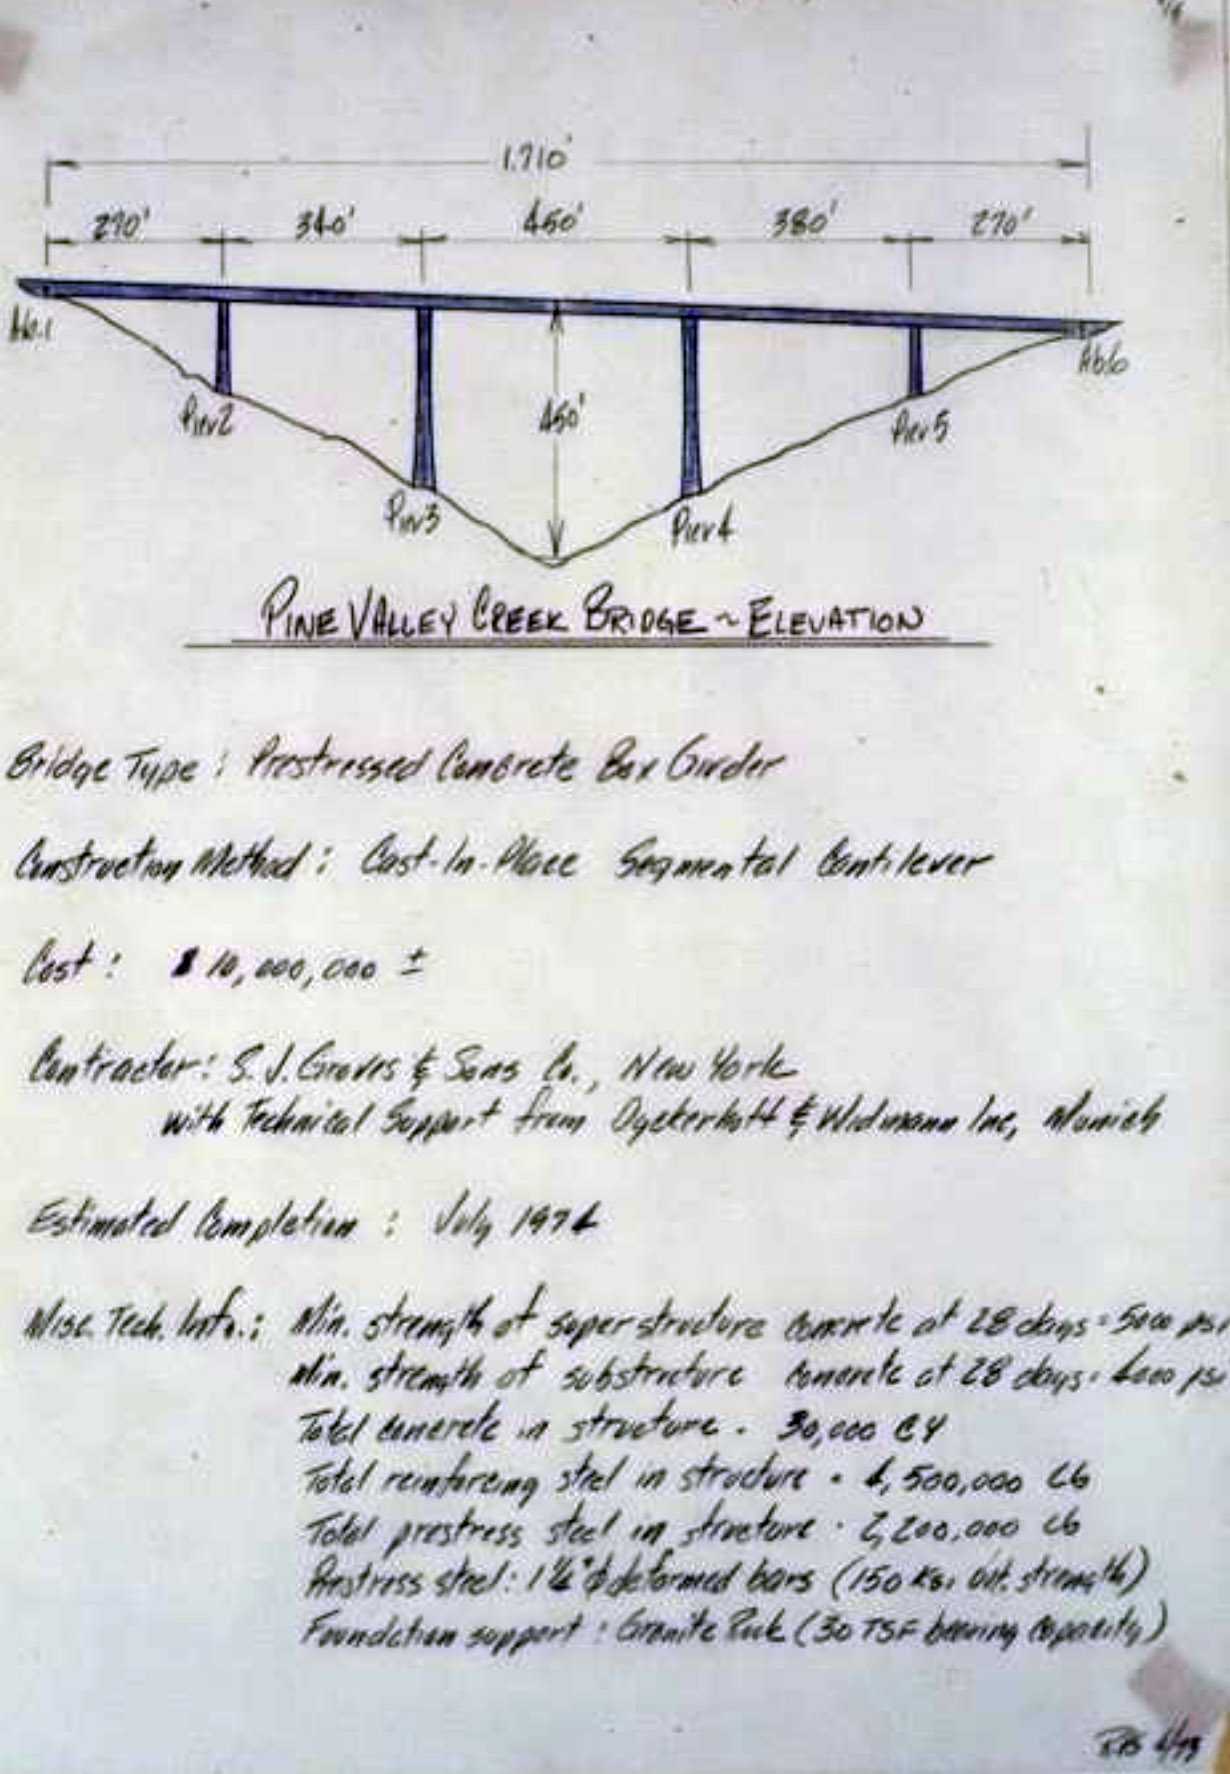 1,710'
270' 340' 450' 380' 270'
Ab.1
Ab.6
450'
Pier 2
Pier 5
Pier 3
Pier 4
PINE VALLEY CREEK BRIDGE ~ ELEVATION
Bridge Type : Prestressed Concrete Box Girder
Construction Method : Cast-In-Place Segmental Cantilever
Cost : $ 10,000,000 ±
Contractor : S. J. Groves & Sons Co., New York
with Technical Support from Dyckerhoff & Widmann Inc, Munich
Estimated Completion : July 1974
Misc. Tech. Info. : Min. strength of superstructure concrete at 28 days = 5000 psi
Min. strength of substructure concrete at 28 days = 4000 psi
Total concrete in structure = 30,000 CY
Total reinforcing steel in structure = 4,500,000 Lb
Total prestress steel in structure = 2,200,000 Lb
Prestress steel : 1¼" ϕ deformed bars (150 Ksi ult. strength)
Foundation support : Granite Rock (30 TSF bearing capacity)
4/73